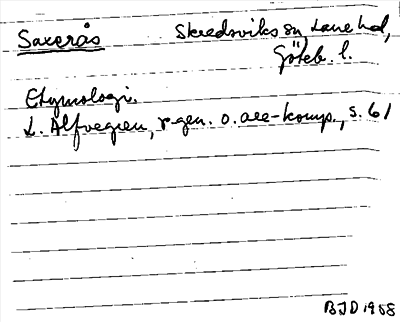 Saxerås Skredsviks sn, Lane hd,
Göteb. l.
Etymologi.
L. Alfvegren, r-gen. o. are-komp., s. 61
BJD 1958